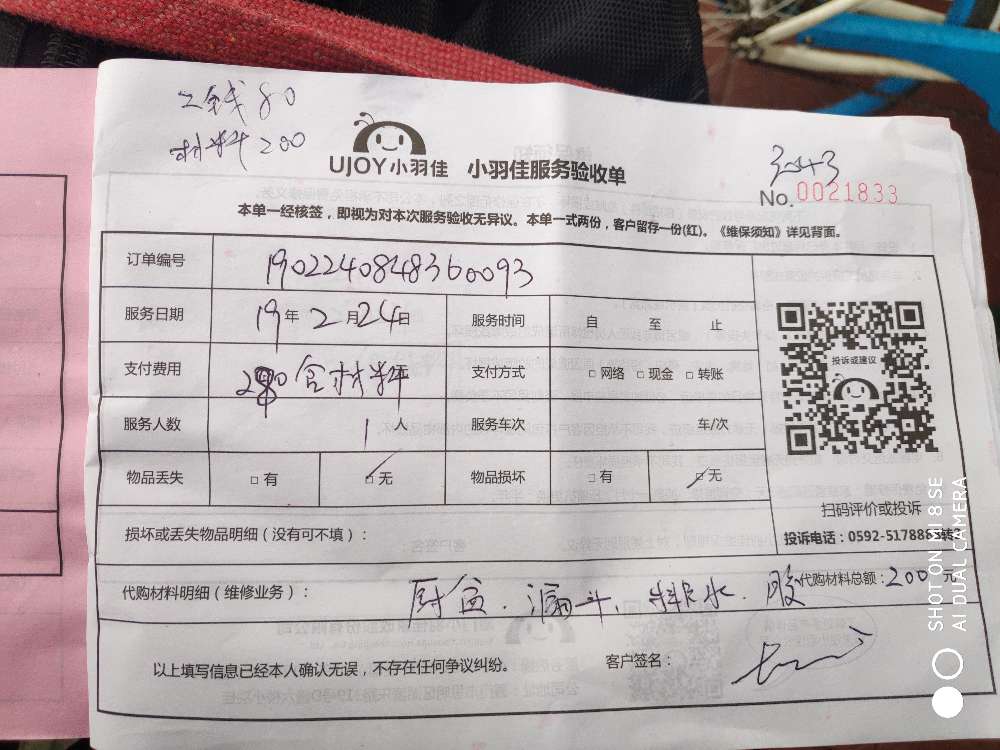 工钱80
材料200
UJOY小羽佳 小羽佳服务验收单
No. 0021833
本单一经核签，即视为对本次服务验收无异议。本单一式两份，客户留存一份(红)。《维保须知》详见背面。
订单编号 190224084836 0093
服务日期 19年2月24日 服务时间 自 至 止
支付费用 含材料 支付方式 □ 网络 □ 现金 □ 转账
投诉或建议
服务人数 1 人 服务车次 车/次
物品丢失 □ 有 □ 无 物品损坏 □ 有 □ 无
扫码评价或投诉
损坏或丢失物品明细（没有可不填）：
投诉电话：0592-5178888转3
代购材料明细（维修业务）： 厨盆、漏斗、排水、胶 代购材料总额：200 元
以上填写信息已经本人确认无误，不存在任何争议纠纷。 客户签名：
SHOT ON MI 8 SE
AI DUAL CAMERA